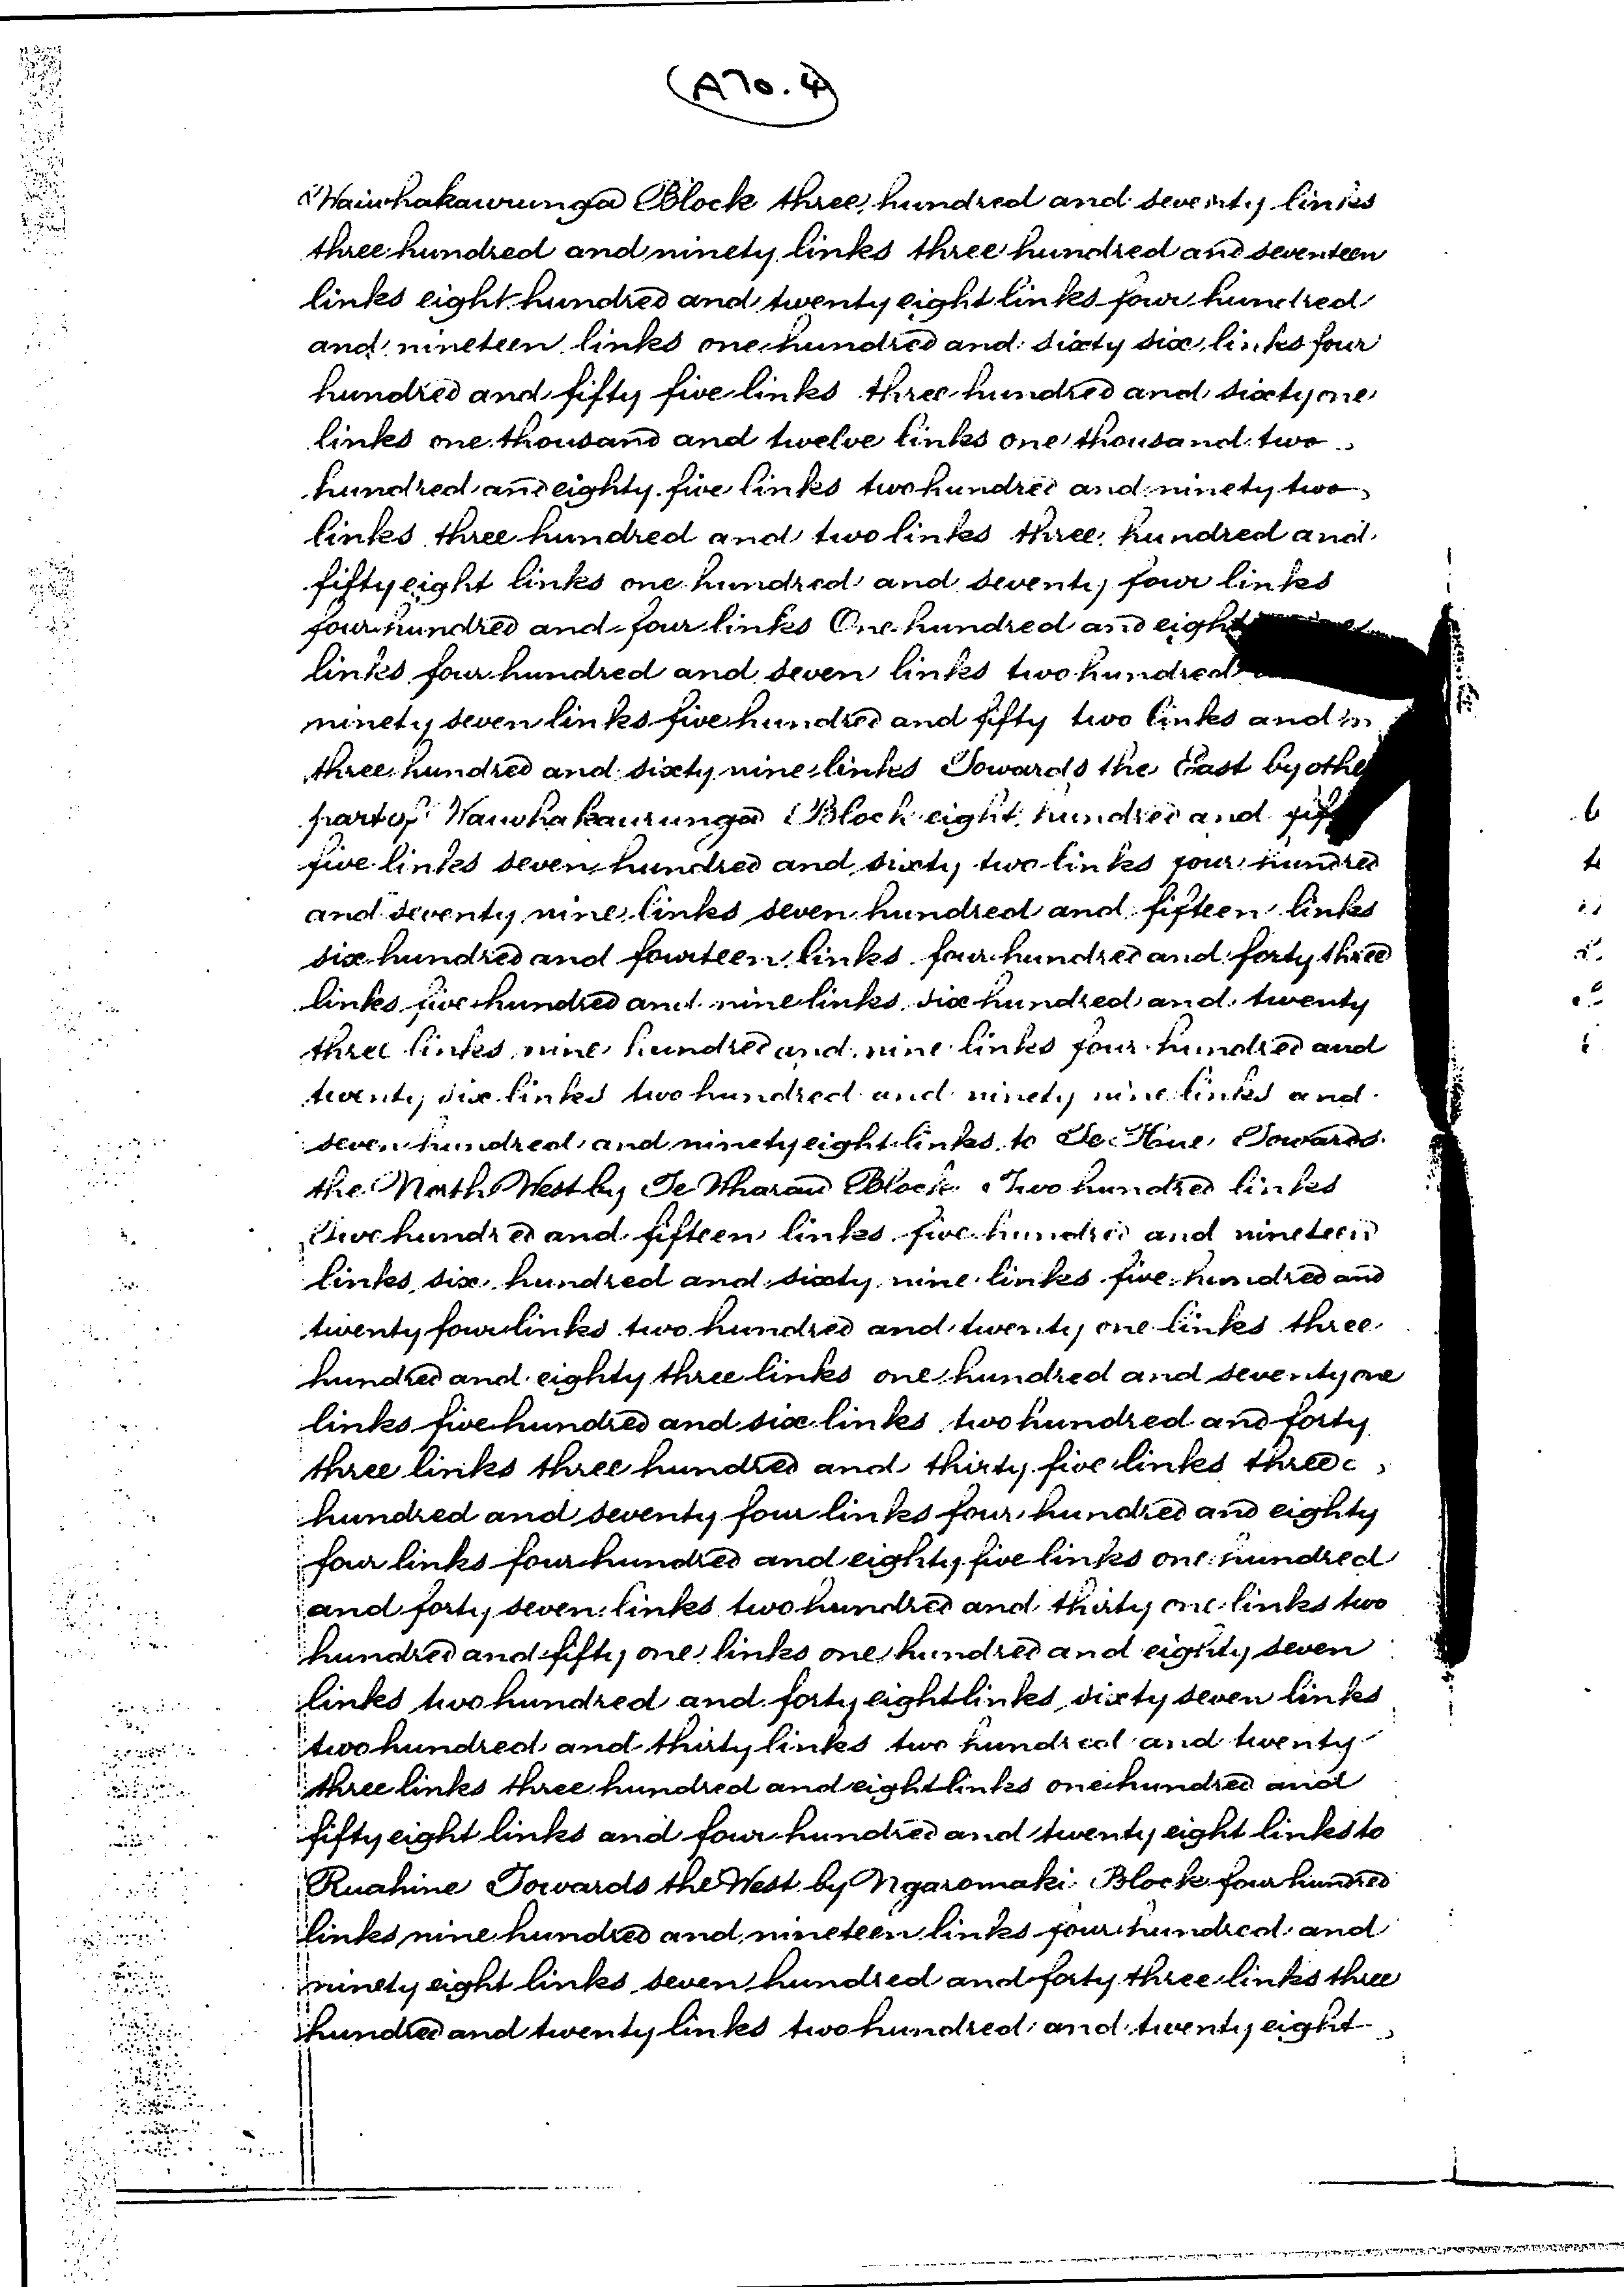 (A70.4)
Waiwhakawrunga Block three hundred and seventy links
three hundred and ninety links three hundred and seventeen
links eight hundred and twenty eight links four hundred
and nineteen links one hundred and sixty six links four
hundred and fifty five links three hundred and sixty one
links one thousand and twelve links one thousand two
hundred and eighty five links two hundred and ninety two
links three hundred and two links three hundred and
fifty eight links one hundred and seventy four links
four hundred and four links One hundred and
links four hundred and seven links two hundred
ninety seven links five hundred and fifty two links and in
three hundred and sixty nine links Towards the East by othe
part of Waiwhakaurunga Block eight hundred and
five links seven hundred and sixty two links four hundred
and seventy nine links seven hundred and fifteen links
six hundred and fourteen links four hundred and forty three
links five hundred and nine links six hundred and twenty
three links nine hundred and nine links four hundred and
twenty six links two hundred and ninety nine links and
seven hundred and ninety eight links to Te Hue Towards
the North West by Te Wharau Block Two hundred links
Two hundred and fifteen links five hundred and nineteen
links six hundred and sixty nine links five hundred and
twenty four links two hundred and twenty one links three
hundred and eighty three links one hundred and seventy one
links five hundred and six links two hundred and forty
three links three hundred and thirty five links three
hundred and seventy four links four hundred and eighty
four links four hundred and eighty five links one hundred
and forty seven links two hundred and thirty one links two
hundred and fifty one links one hundred and eighty seven
links two hundred and forty eight links sixty seven links
two hundred and thirty links two hundred and twenty
three links three hundred and eight links one hundred and
fifty eight links and four hundred and twenty eight links to
Ruahine Towards the West by Ngaromaki Block four hundred
links nine hundred and nineteen links four hundred and
ninety eight links seven hundred and forty three links three
hundred and twenty links two hundred and twenty eight